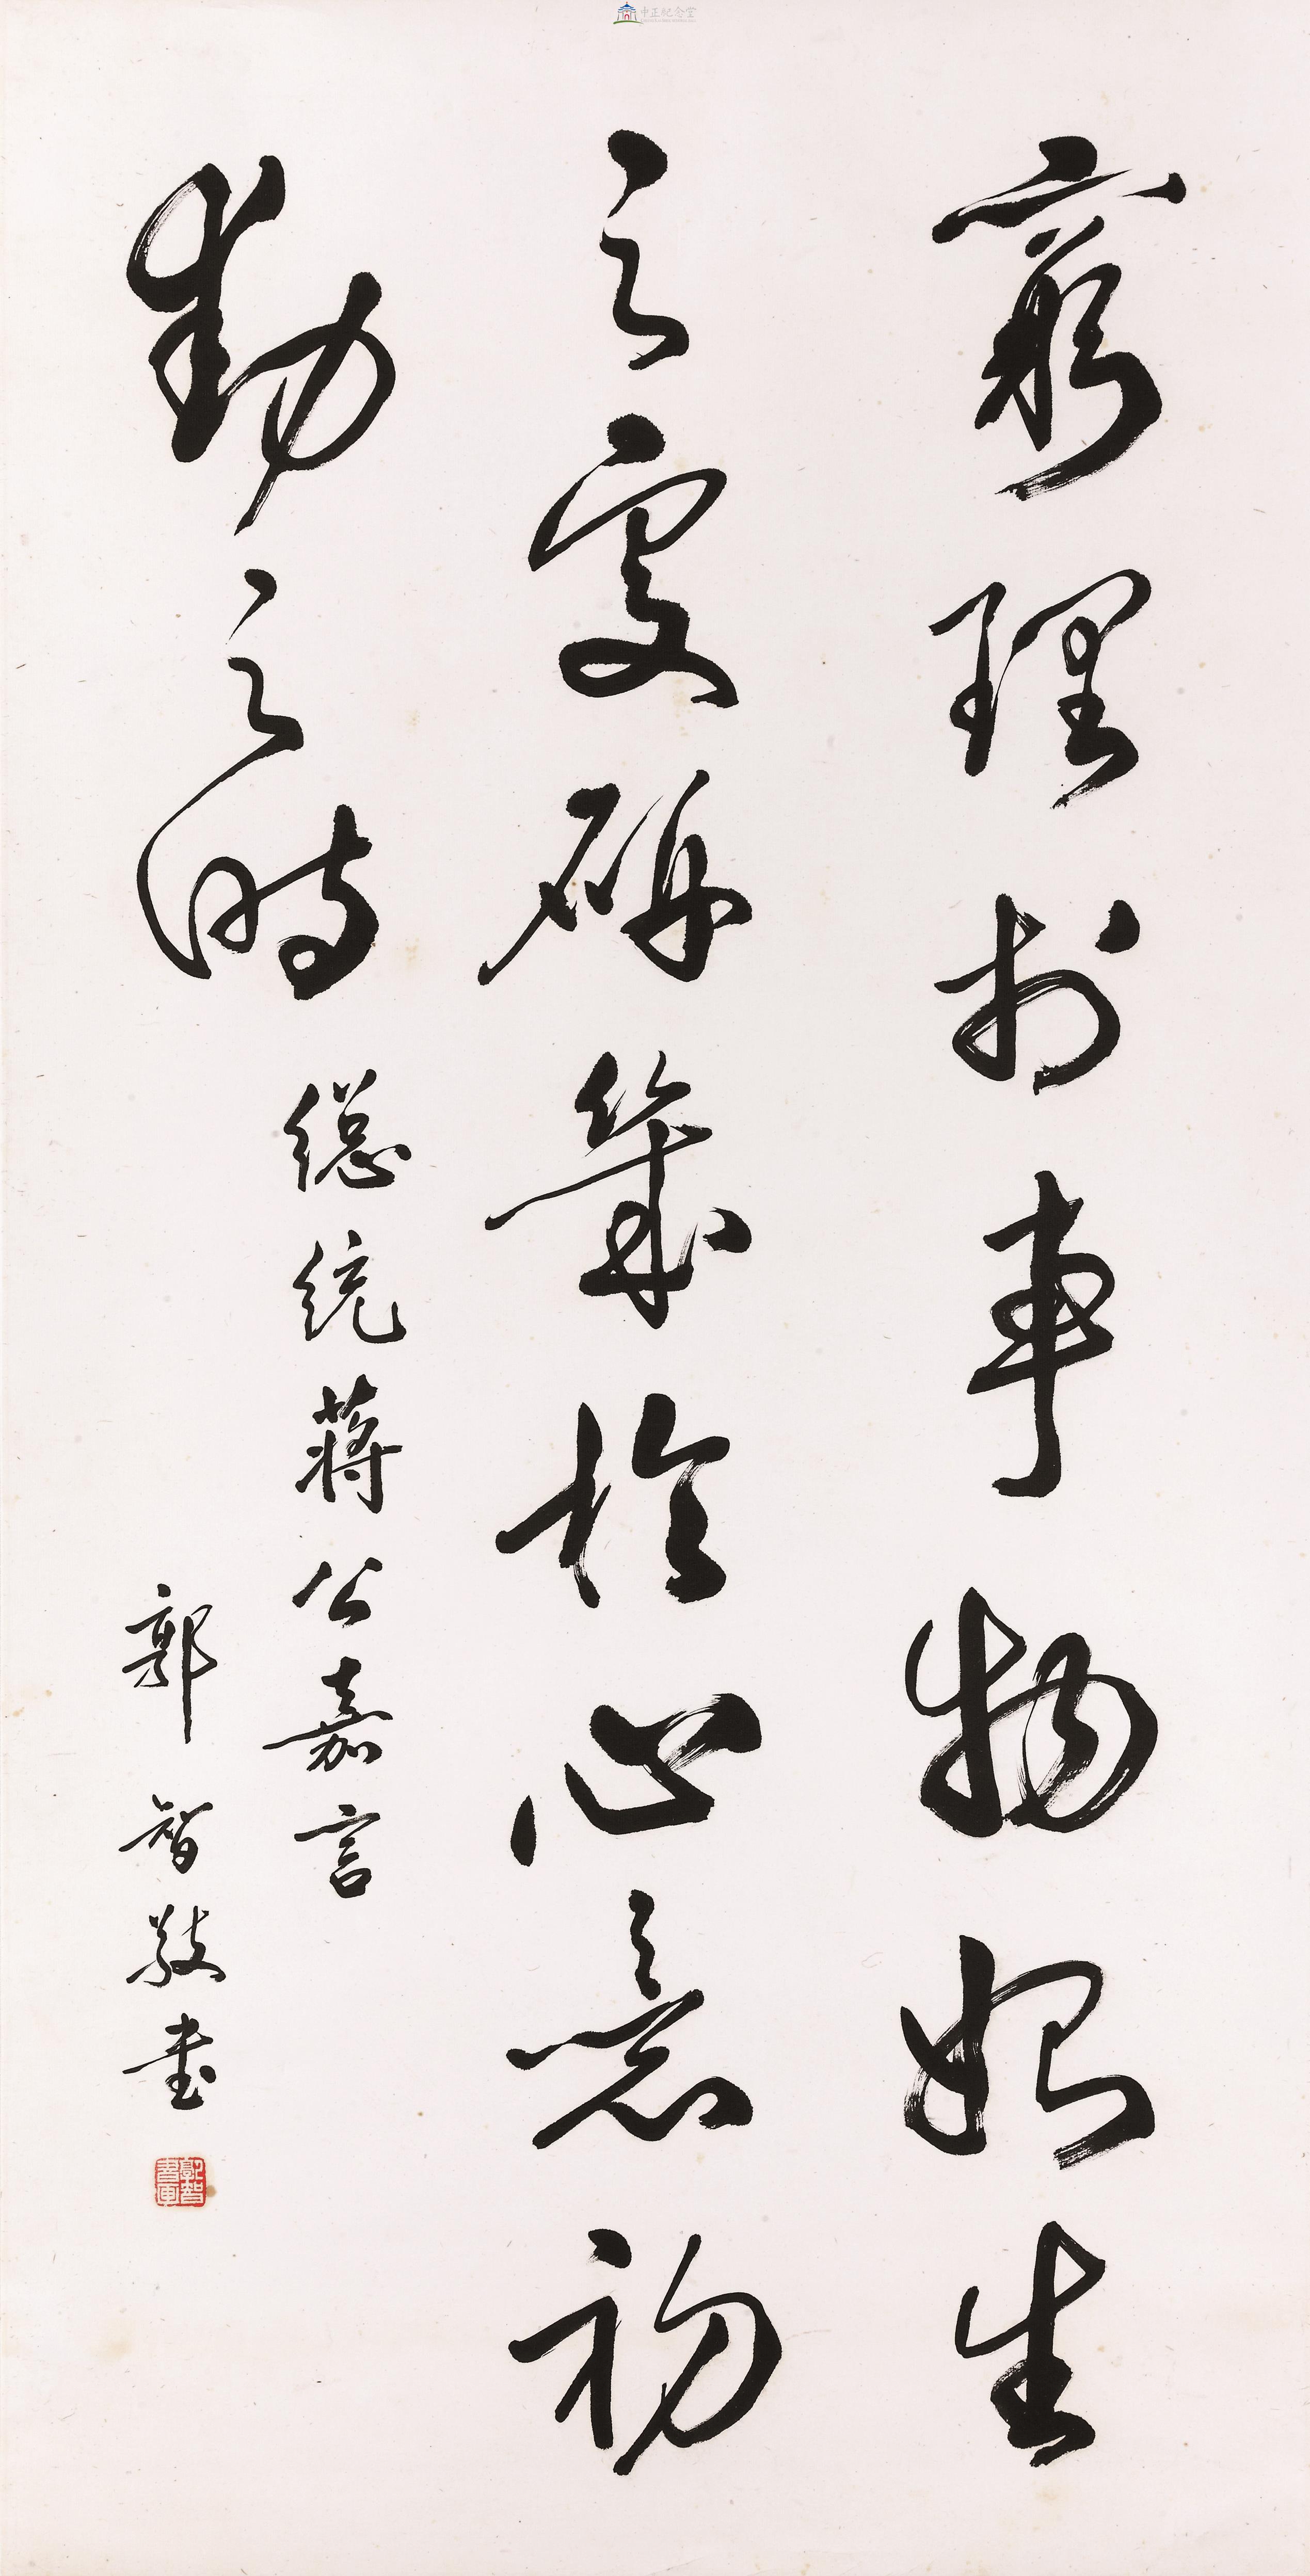 窮理於事物始生
之處研幾於心意初
動之時
總統蔣公嘉言
郭智敬書
中正紀念堂